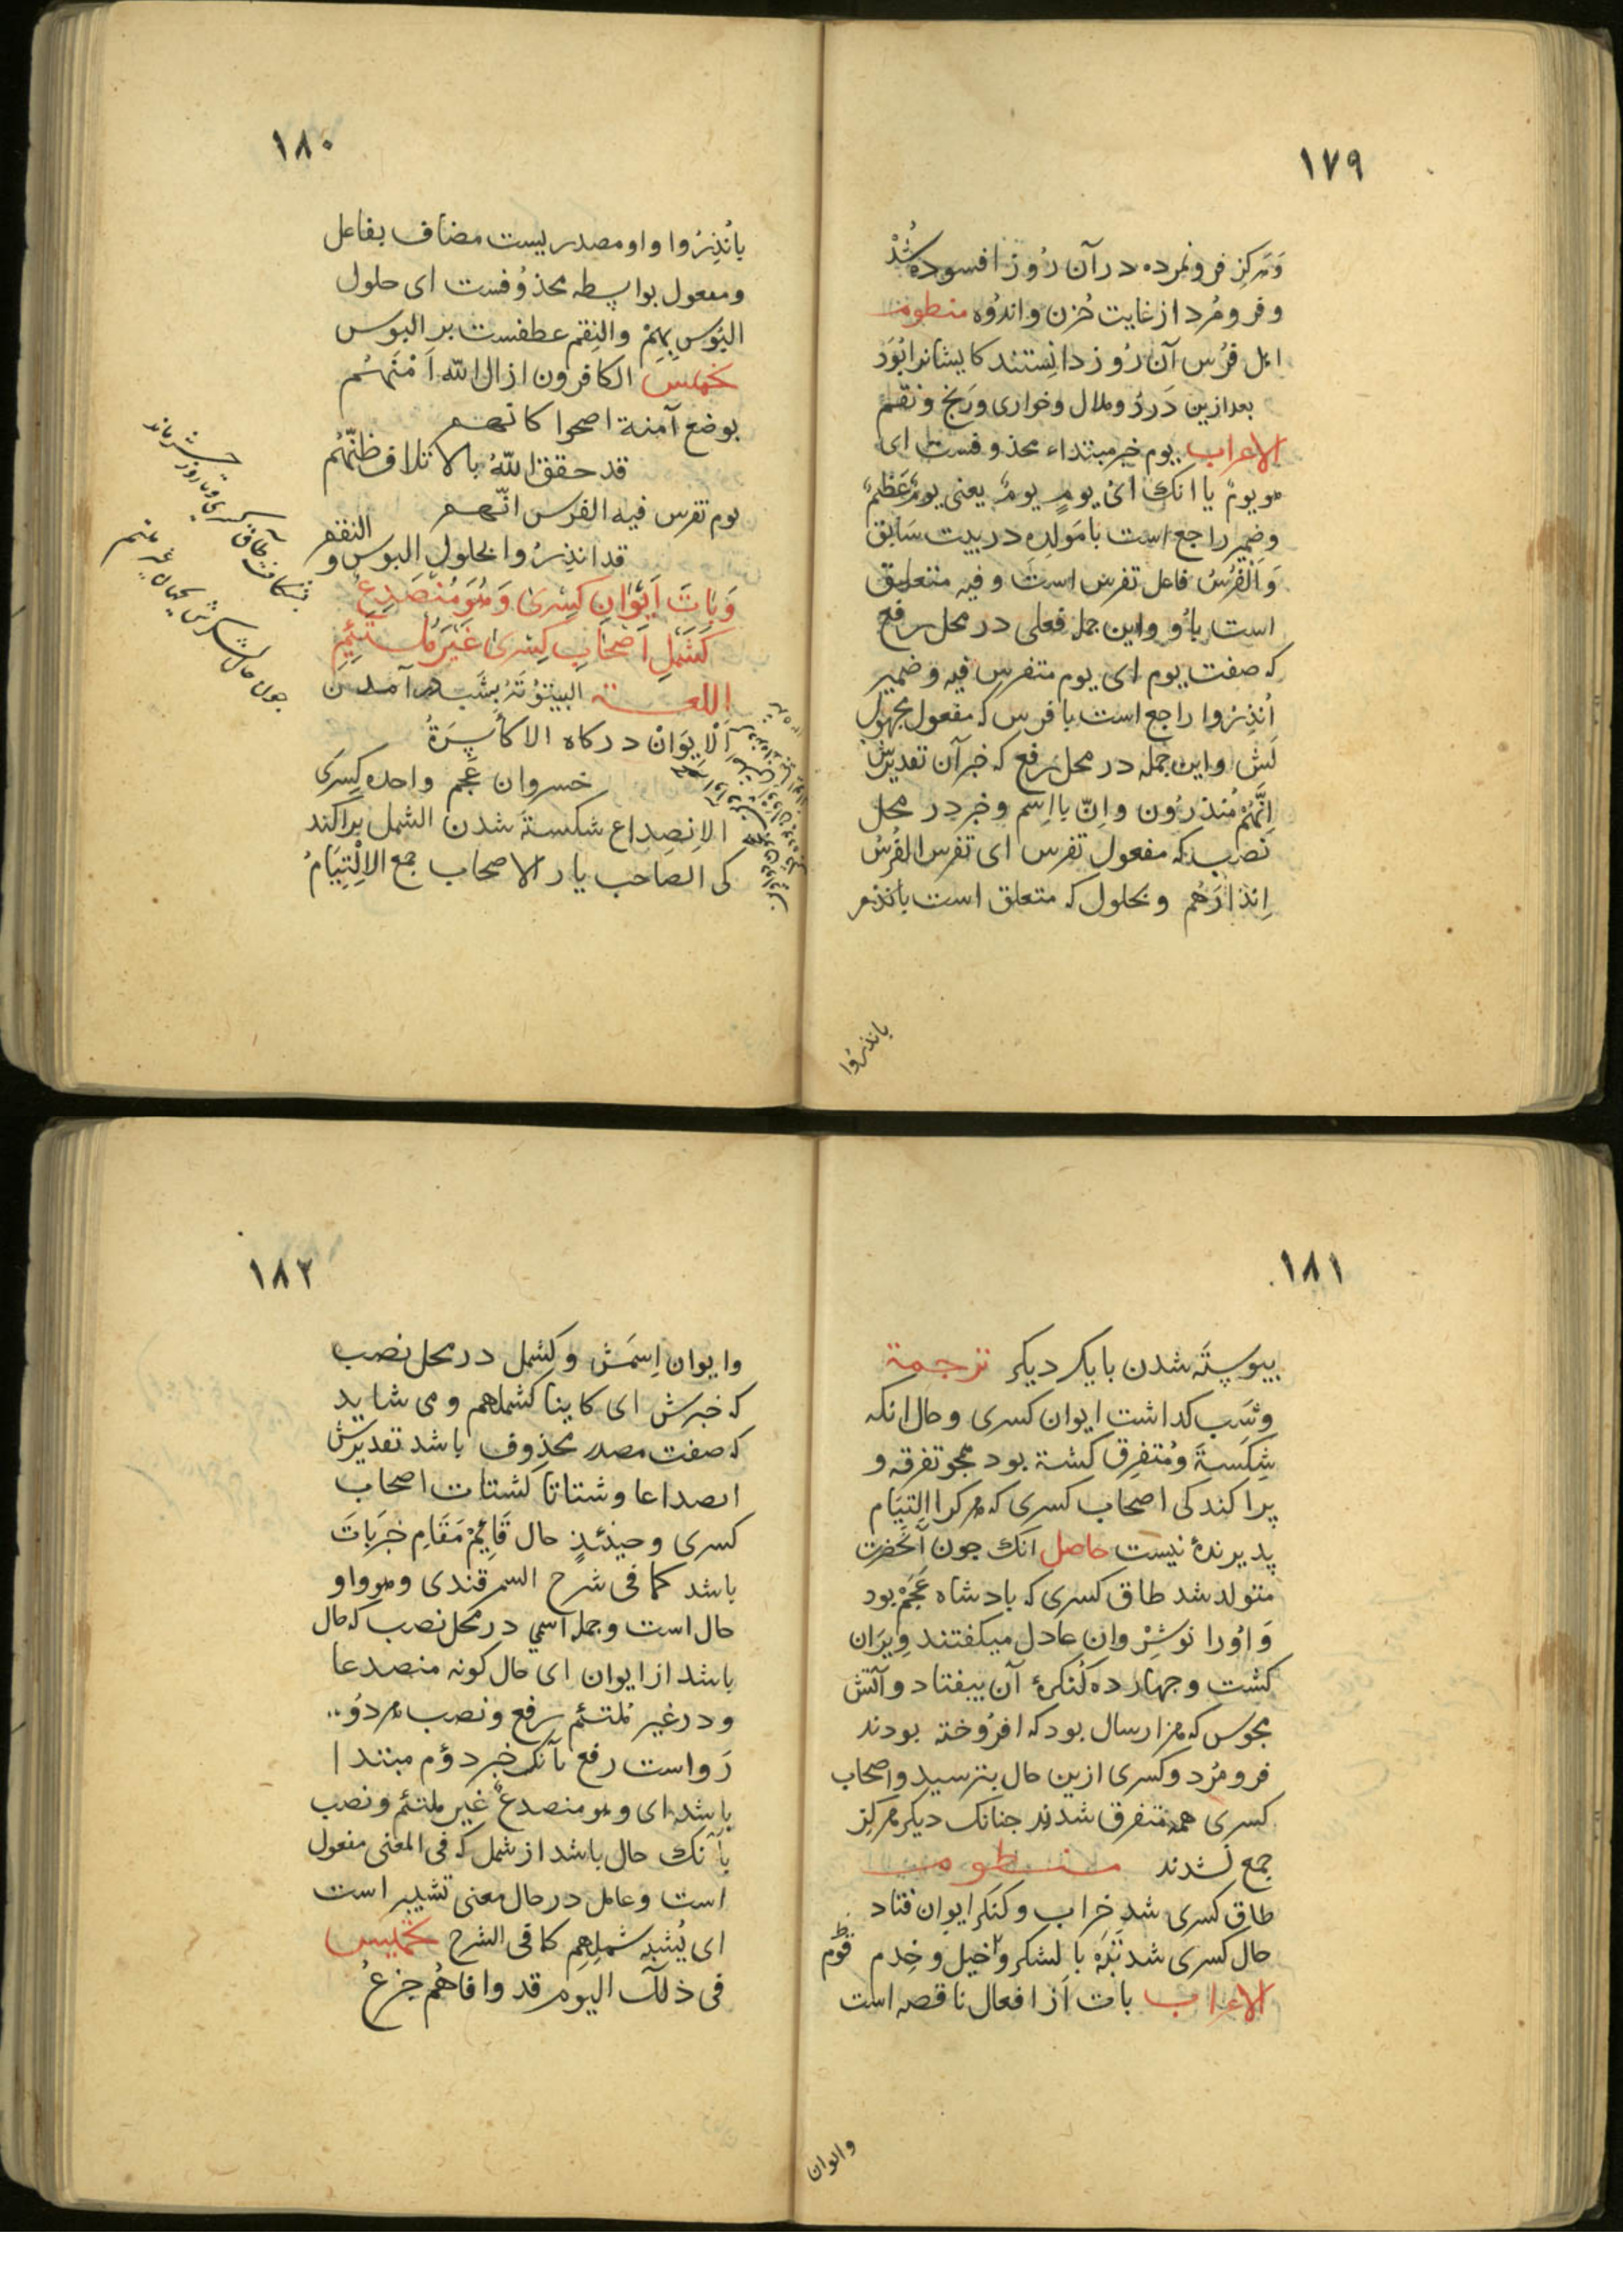 ١٧٩
وَهرکِز فرونمرده در آن رُوز افسوده شُدْ
و فرومُرد از غایت حُزن و اندُوه منظومه
اهل فرُس آن رُوز دانِستند کایشانرا بُوَد
بعد ازین دَردُ و ملال و خواری و رَنج و نقم
الاعراب یوم خبر مبتداء محذوفست ای
هو یومٌ یا انک ای یومٍ یومٌ یعنی یومٌ عَظِیمٌ
و ضمیر راجع است با مَولِدِه در بیت سَابق
وَ اَلْفُرْسُ فاعل تفرس است و فیه متعلق
است باُو و این جمله فعلی در محل رفع
که صفت یوم ای یوم متفرس فیه و ضمیر
اُنذِرُوا راجع است با فرس که مفعول مجهول
لَش و این جمله در محل رفع که خبر آن تقدیرش
اِنَّهُمْ مُنذرُون و اِنّ با اِسم و خبر در محل
نصب که مفعول تفرس ای تفرس الفُرسُ
اِنذارَهُم و بحلول که متعلق است بانذر
بانذرُوا
١٨٠
بانُذِرُوا واو مصدریست مضاف بفاعل
و مفعول بواسطه محذوُفست ای حلول
البُوسِ بِهِمْ والنِقم عطفست بر البوس
تخمیس الکافرون ازال الله اَمْنَهُم
بوضع آمنة اصحوا کانهم
قد حقق اللّٰهُ بالاتلاف ظنَّهُم
یوم تفرس فیه الفرس انّهم
قد انذِرُوا بحلول البوس و النقم
وَ بَاتَ اَیْوَانُ کِسْریٰ وَهُوَ مُنْصَدِعٌ
کَشَمْلِ اَصْحَابِ کِسْریٰ غَیْرَ مُلْتَئِمِ
اللغـــة البیتوُتَة بشَب در آمدن
اَلْاِیوَانْ درکاه الاکاسِرَةُ
خسروان عَجم واحده کِسرَی
الاِنصِداع شکسته شدن الشمل پراکند
کی الصاحب یار الاصحاب جمع الاِلْتِیَامُ
١٨١
بپیوسته شدن با یک دیکر ترجمة
و شَب کداشت ایوان کسری و حال انکه
شِکَستَة و مُتفرِق کشته بود همجو تفرقه و
پراکندکی اصحاب کسری که هرکز االتِیَام
پدیرندهٔ نیست حاصل انک جون آنحَضرت
متولد شد طاق کسری که بادشاه عَجَمْ بود
وَ اوُرا نوشِرْوان عادل میکفتند وِیرَان
کشت و جهارده کُنکرهٔ آن بیفتاد و آتش
مجوس که هزار سال بود که افرُوخته بودند
فرومُرد و کسری ازین حال بترسید و اصحاب
کسری همه متفرق شدند جنانک دیکر هرکِز
جمع نَشدند منظومه
طاق کسری شد خراب و کنکر ایوان فتاد
حال کسری شد تبَه با لشکر و خیل و خِدم
الاعراب بات از افعال ناقصه است
وایوان
١٨٢
وایوان اِسمَش و کشمل در محل نصب
که خبرش ای کاینا کشملهم و می شاید
که صفت مصدر محذوف باشد تقدیرش
انصداعا و شتاتا کشتات اصحاب
کسری و حینئذٍ حال قَایمْ مَقَامِ خبَرِ بَاتَ
باشد کما فی شرح السمرقندی و هو واو
حال است و جمله اسمی در محل نصب که حال
باشد از ایوان ای حال کونه منصدعا
و در غیر مُلتئم رفع و نصب هر دُو
رَواست رفع بآنک خبر دوُم مبتدا
باشد ای و هو منصدعٌ غیرُ ملتئم و نصب
بآنک حال باشد از شمل که فی المعنی مفعول
است و عامل در حال معنی تشبیه است
ای یُشبِه شملِهِم کما فی الشرح تخمیس
فی ذلک الیوم قد وافاهُم جزعُ